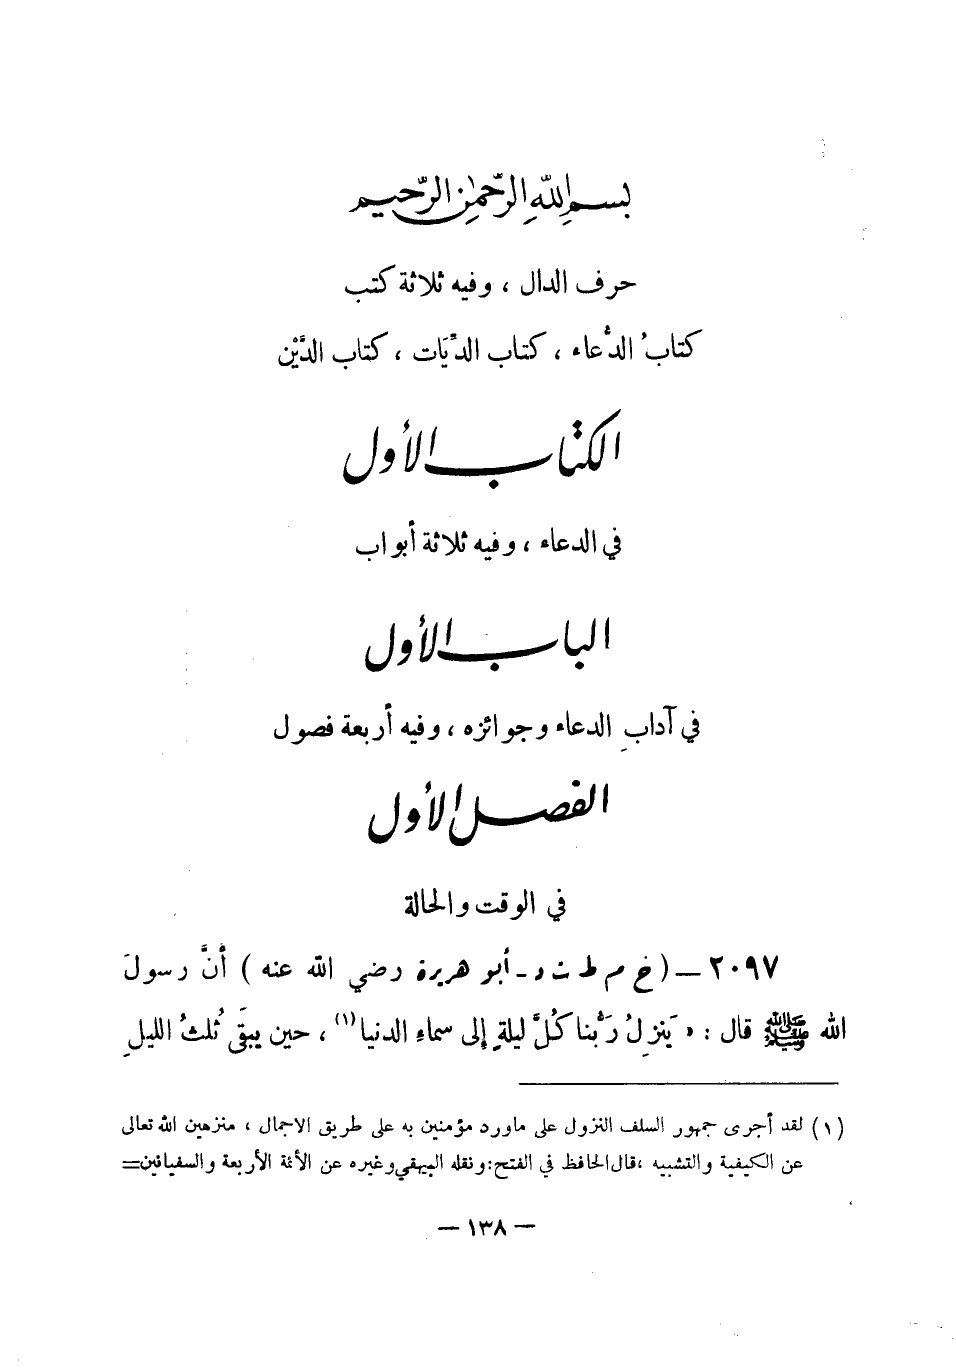 بسم اللهِ الرّحمٰنِ الرّحيم
حرف الدال ، وفيه ثلاثة كتب
كتابُ الدُّعاء ، كتاب الدِّيَات ، كتاب الدَّيْن
الكتاب الأول
في الدعاء ، وفيه ثلاثة أبواب
الباب الأول
في آدابِ الدعاء وجوائزه ، وفيه أربعة فصول
الفصل الأول
في الوقت والحالة
٢٠٩٧ – ( خ م ط ت د - أبو هريرة رضي الله عنه ) أنَّ رسولَ
الله ﷺ قال : « يَنزِلُ رَبُّنا كُلَّ ليلةٍ إلى سماءِ الدنيا (١) ، حين يبقَى ثُلثُ الليلِ
(١) لقد أجرى جمهور السلف النزول على ماورد مؤمنين به على طريق الاجمال ، منزهين الله تعالى
عن الكيفية والتشبيه ، قال الحافظ في الفتح : ونقله البيهقي وغيره عن الأئمة الأربعة والسفيانين =
– ١٣٨ –